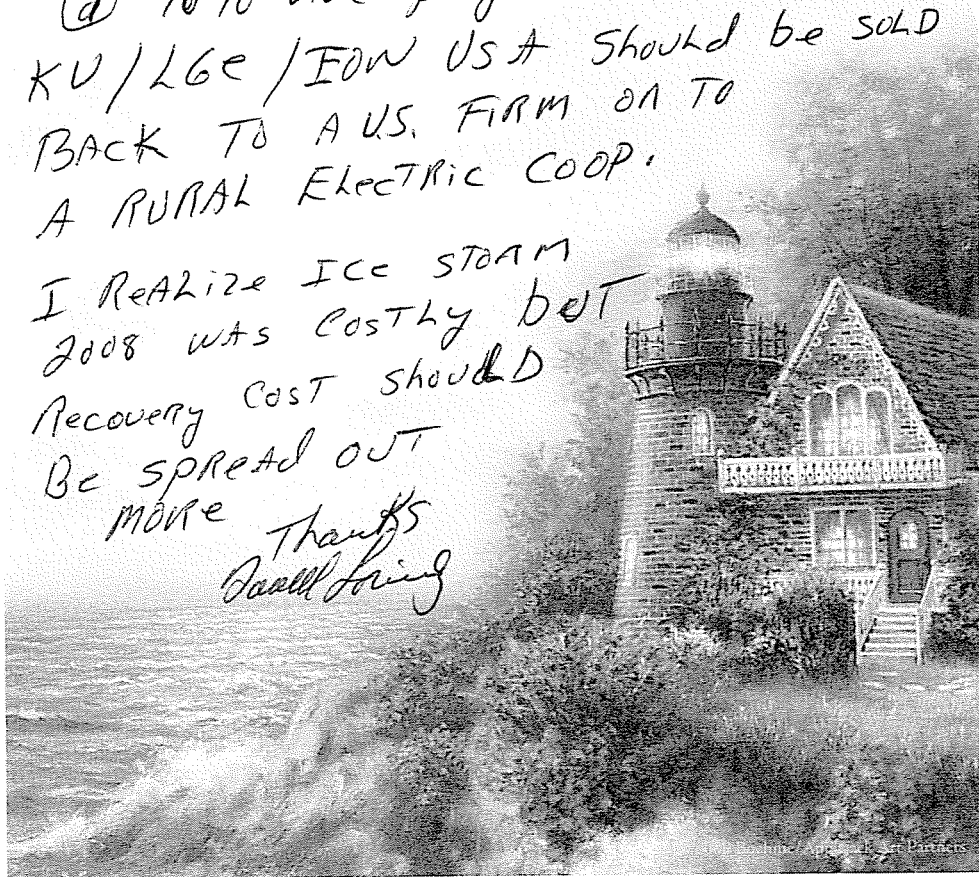 KU/LGe/EON USA should be SOLD
BACK TO A U.S. FIRM OR TO
A RURAL ELecTRic COOP.
I ReALize ICe STORM
2008 WAS CosTLy buT
Recovery CosT shouLD
Be SPReAd OUT
MORe
Thanks
Art Partners